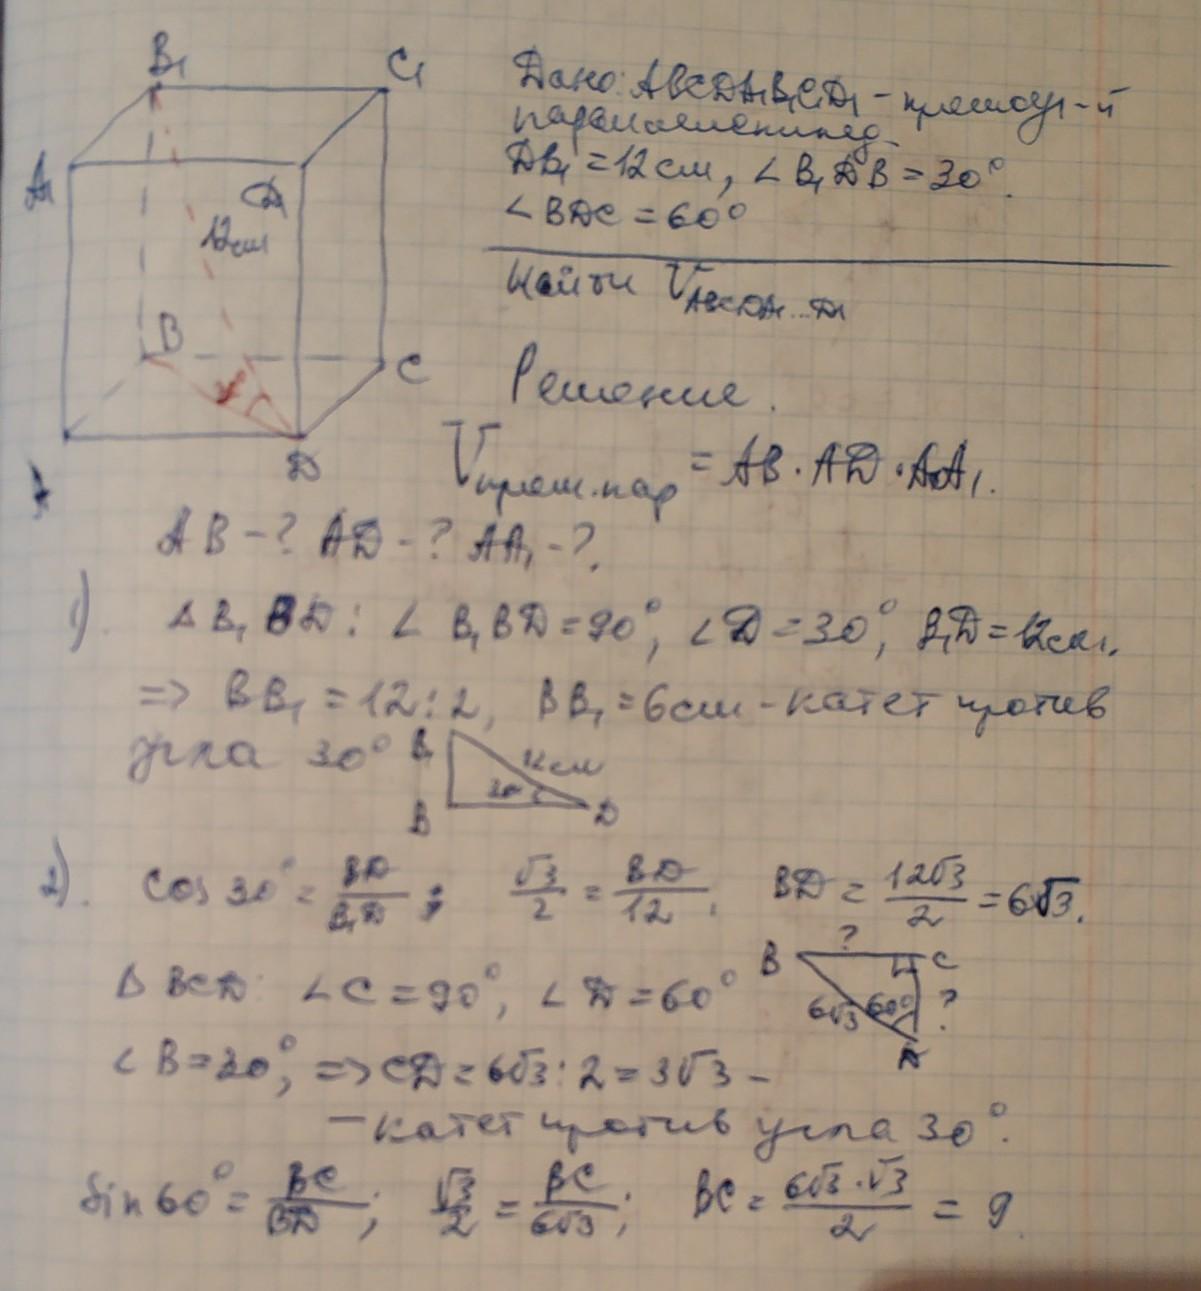 B₁ C₁
A₁ D₁
12см
B C
D
A
Дано: ABCDA₁B₁C₁D₁ – прямоуг-й
параллелепипед.
DB₁ = 12 см, ∠B₁DB = 30°.
∠BDC = 60°
Найти V_ABCDA₁...D₁
Решение.
V_прям.пар = AB · AD · AA₁.
AB – ? AD – ? AA₁ – ?.
1). Δ B₁BD : ∠ B₁BD = 90°, ∠D = 30°, B₁D = 12см.
=> BB₁ = 12 : 2, BB₁ = 6см – катет против
угла 30°
B₁ 12см
30°
B D
2). cos 30° = BD/B₁D ; √3/2 = BD/12. BD = 12√3/2 = 6√3.
Δ BCD: ∠C = 90°, ∠D = 60°
B ? C
6√3 60° ?
D
∠B = 30°, => CD = 6√3 : 2 = 3√3 –
– катет против угла 30°.
Sin 60° = BC/BD ; √3/2 = BC/6√3 ; BC = 6√3 · √3/2 = 9